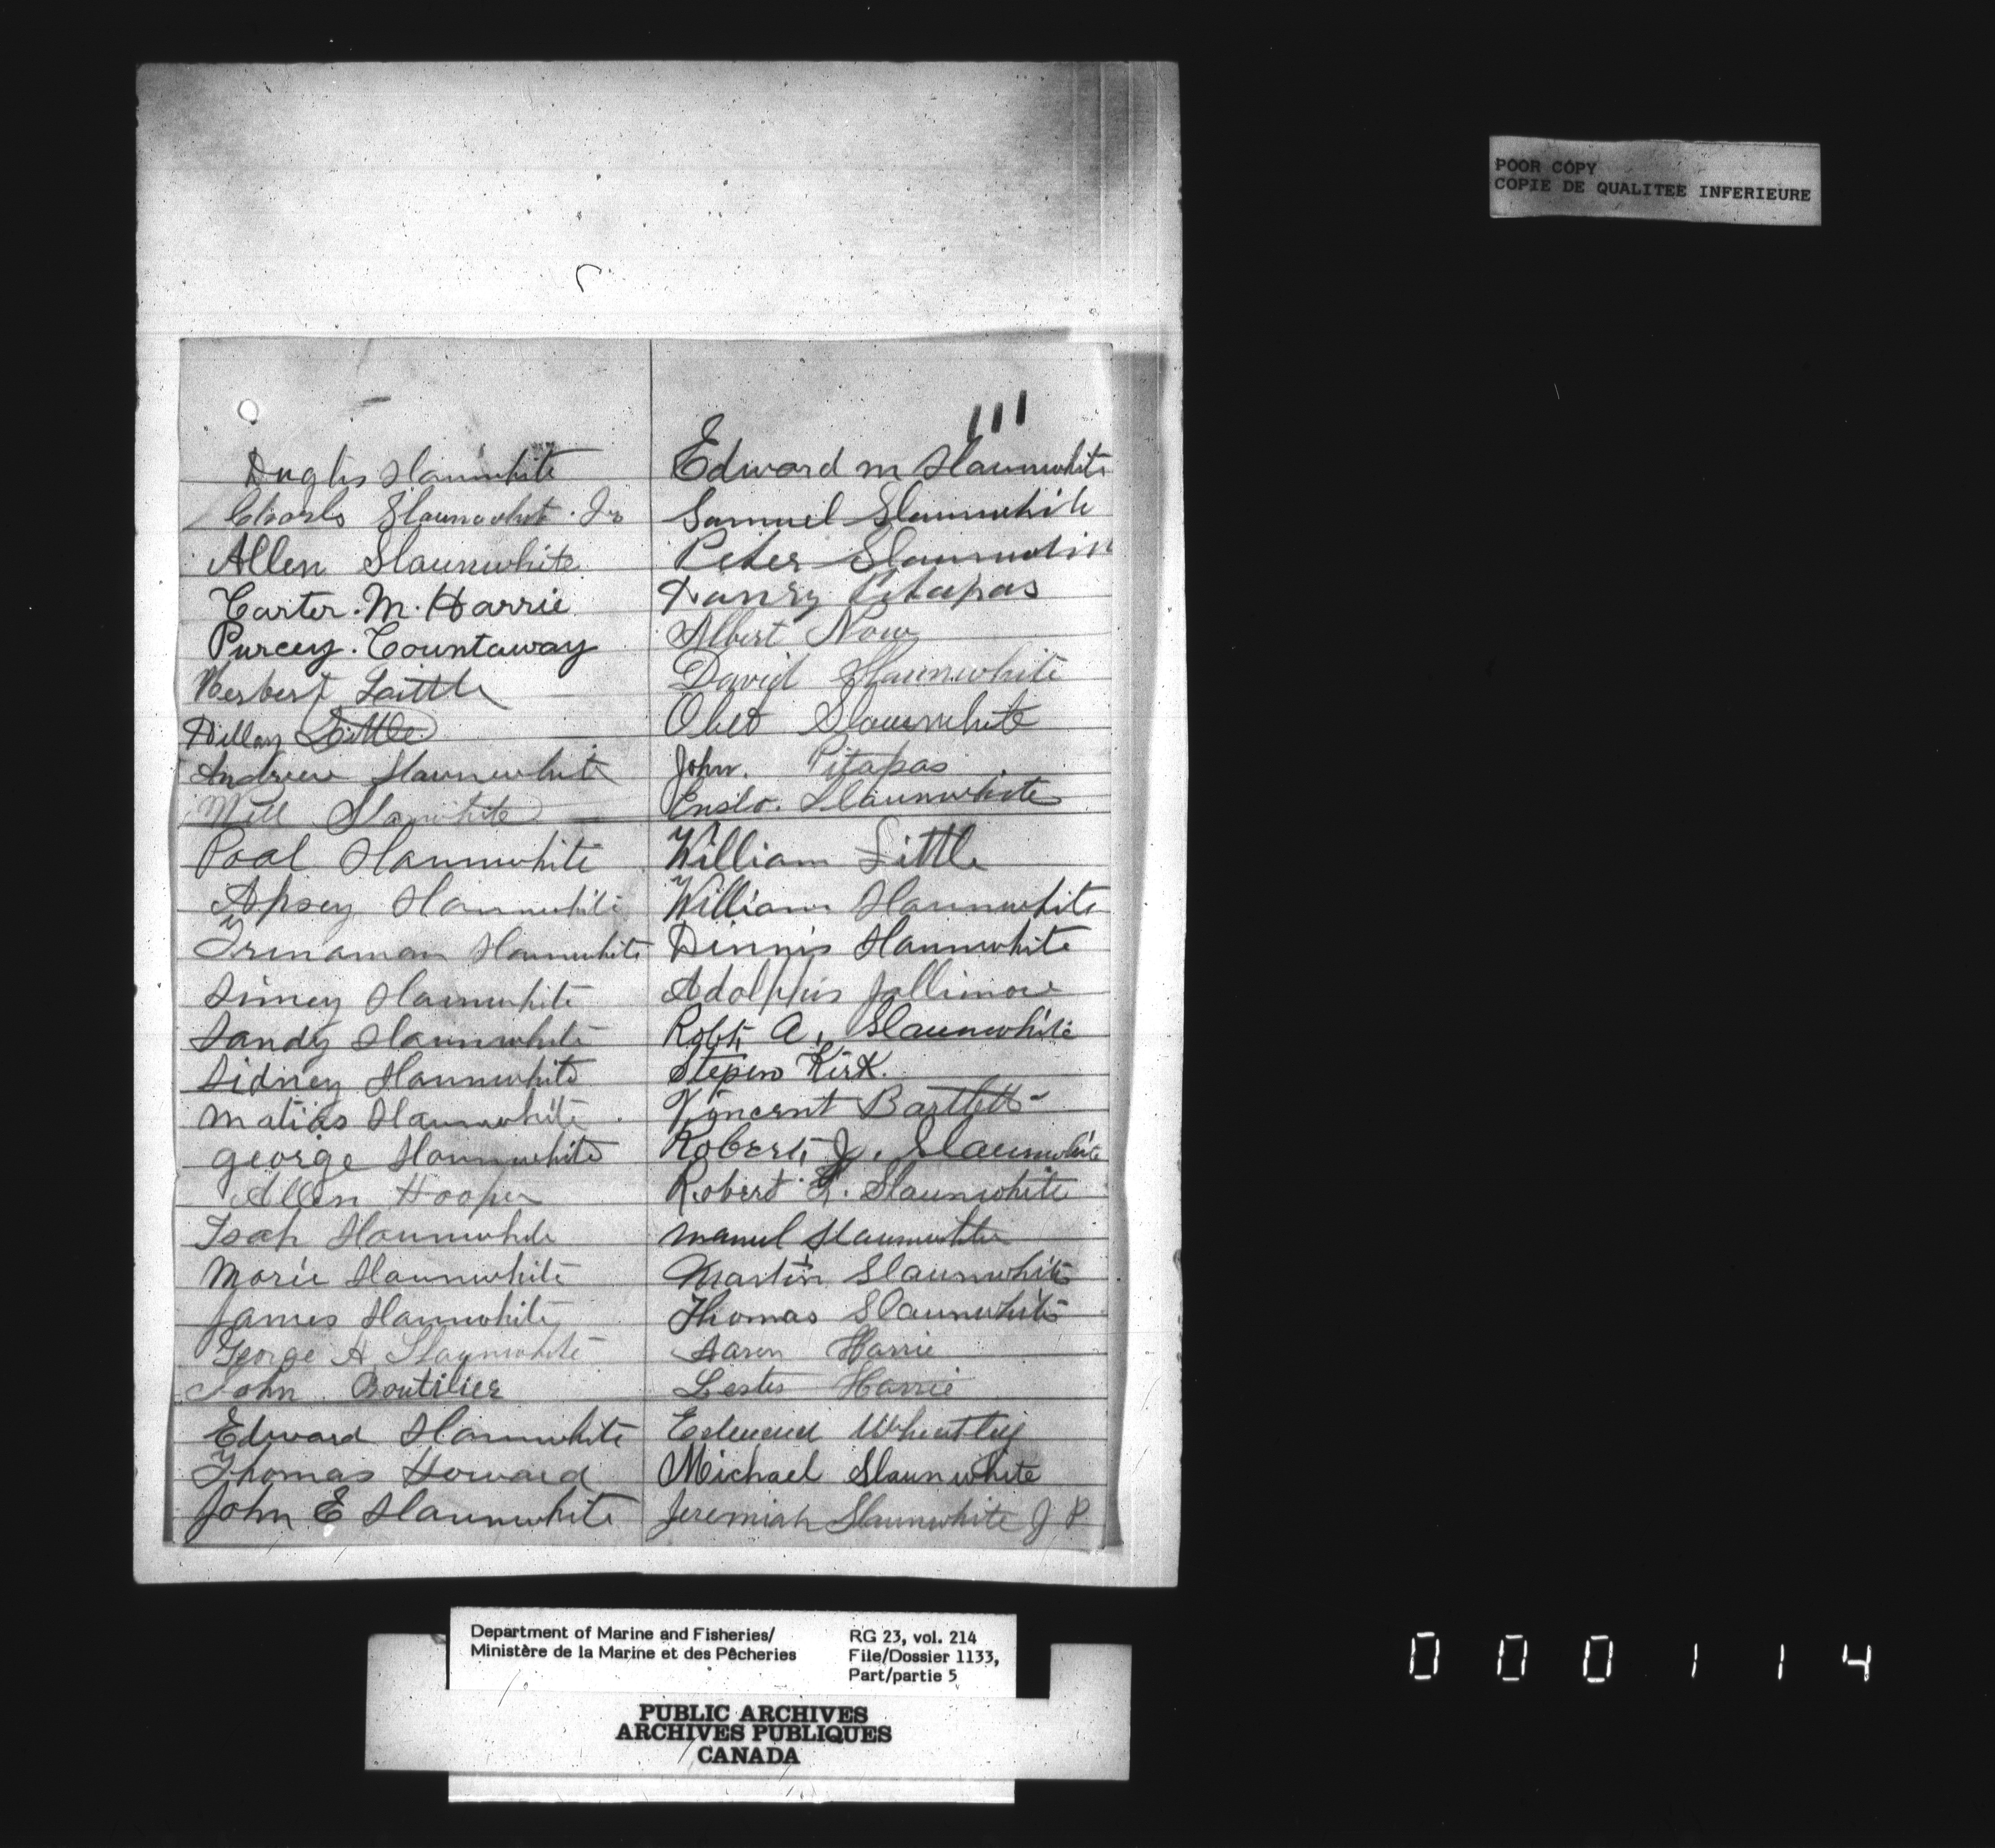 POOR COPY
COPIE DE QUALITEE INFERIEURE
111
Duglis Slaunwhite
Charls Slaunwhite Jr
Allen Slaunwhite
Carter. M. Harrie
Purcey. Countaway
Herbert Laittle
Dillan Little
Andrew Slaunwhite
Will Slawhite
Poal Slaunwhite
Apsey Slaunwhite
Trenaman Slaunwhite
Simey Slaunwhite
Sandy Slaunwhite
Sidney Slaunwhite
Matias Slaunwhite
george Slaunwhite
Allen Hooper
Isah Slaunwhite
Morie Slaunwhite
James Slaunwhite
George A Slaunwhite
John Boutilier
Edward Slaunwhite
Thomas Howard
John E Slaunwhite
Edward m Slaunwhite
Samuel Slaunwhite
Peter Slaunwhite
Pitapas
Albert Now
David Slaunwhite
Obed Slaunwhite
John. Pitapas
Enslo. Slaunwhite
William Little
William Slaunwhite
Dinnis Slaunwhite
Adolphis Jollimore
Robt. A. Slaunwhite
Stepen Kirk.
Vincent Bartlett
Robert J. Slaunwhite
Robert L. Slaunwhite
Manul Slaunwhite
Martin Slaunwhite
Thomas Slaunwhite
Aaron Harrie
Lester Harrie
Edmund Wheatley
Michael Slaunwhite
Jeremiah Slaunwhite J P
Department of Marine and Fisheries/
Ministère de la Marine et des Pêcheries
RG 23, vol. 214
File/Dossier 1133,
Part/partie 5
PUBLIC ARCHIVES
ARCHIVES PUBLIQUES
CANADA
000114